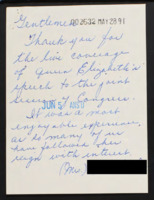 Gentlemen:
Thank you for
the live coverage
of Queen Elizabeth's
speech to the joint
of Congress.
JUN 5
It was a most
enjoyable experience,
as so many of us
have followed her
reign with interest.
Mrs.